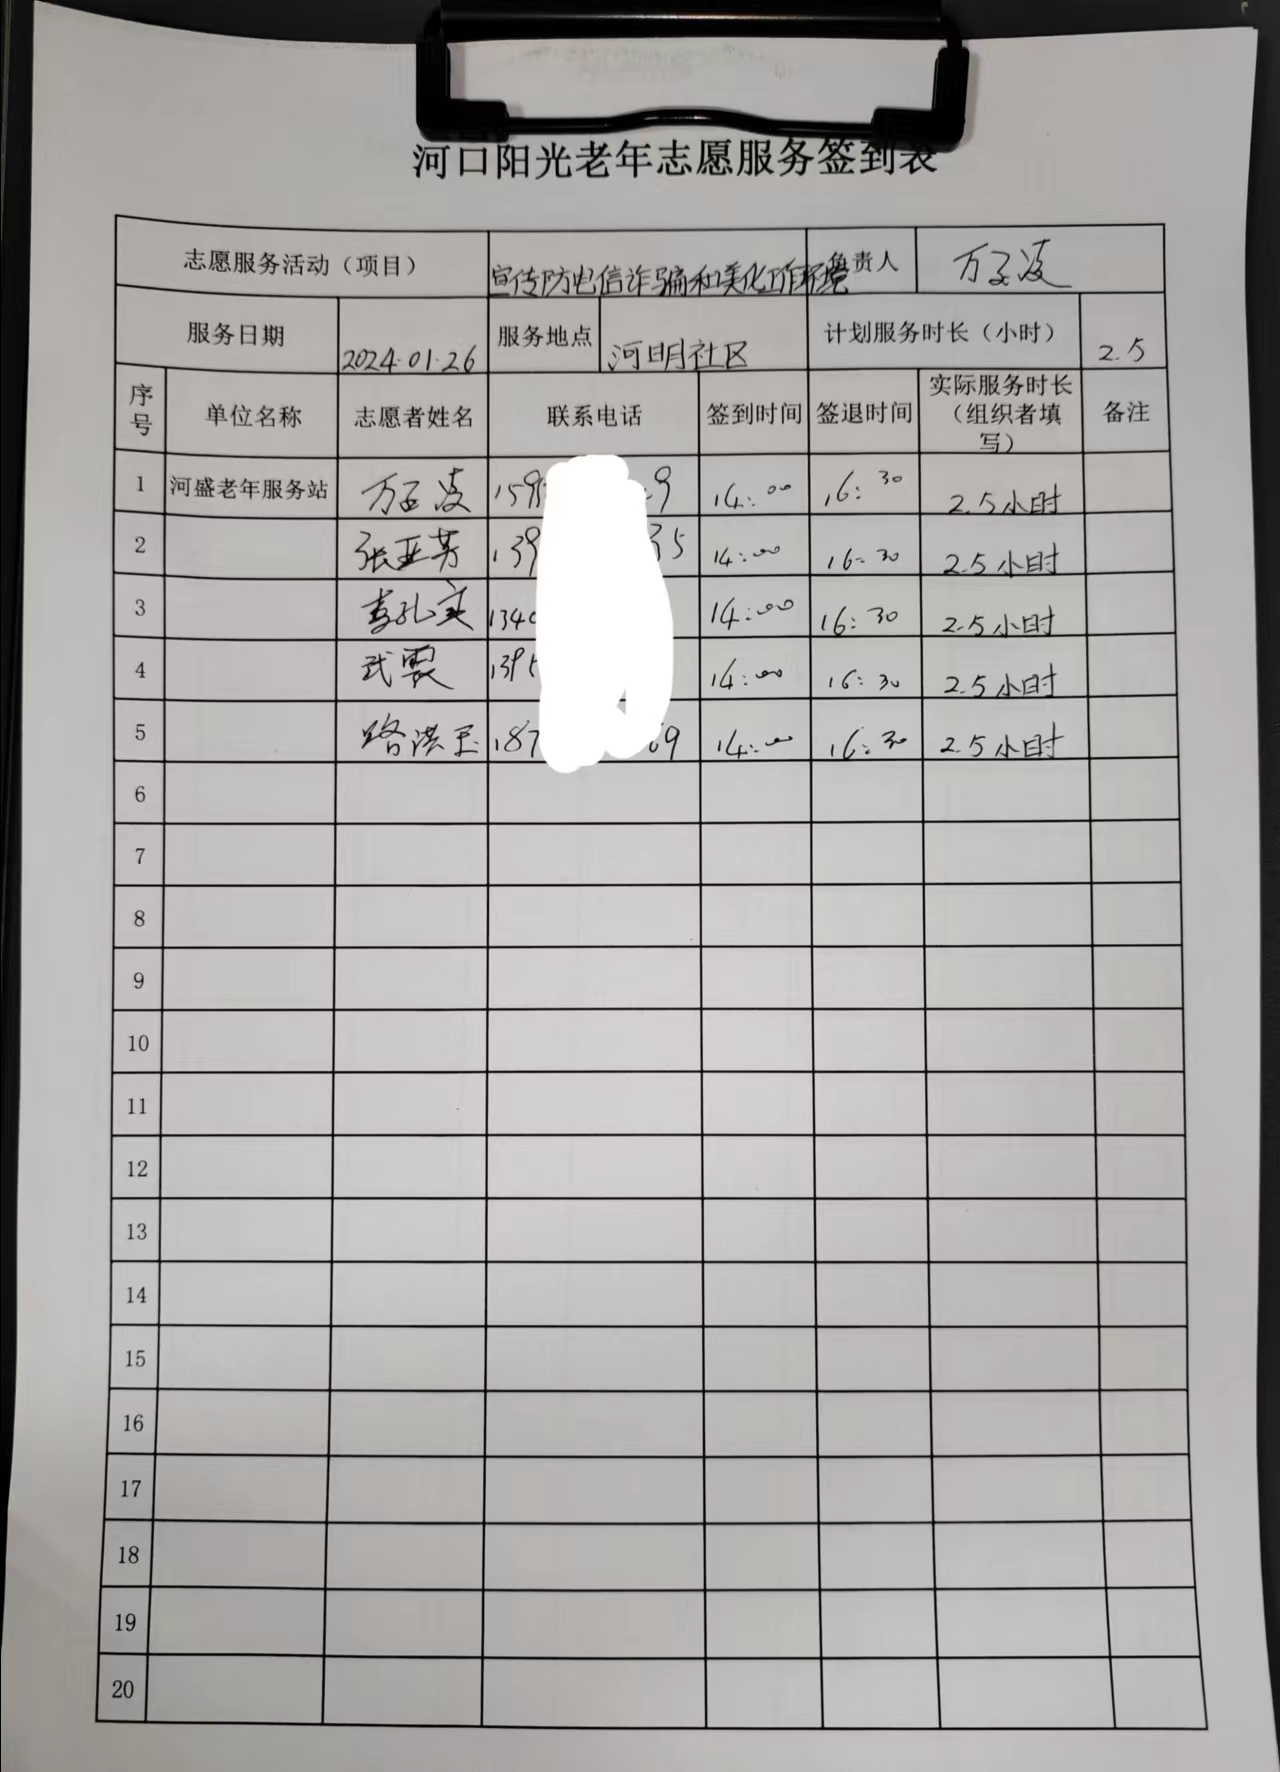 河口阳光老年志愿服务签到表
志愿服务活动（项目） 宣传防电信诈骗和美化工作环境 负责人 万子凌
服务日期 2024.01.26 服务地点 河明社区 计划服务时长（小时） 2.5
序号 单位名称 志愿者姓名 联系电话 签到时间 签退时间 实际服务时长（组织者填写） 备注
1 河盛老年服务站 万子凌 159 9 14:00 16:30 2.5小时
2 张亚芳 139 35 14:00 16:30 2.5小时
3 134 14:00 16:30 2.5小时
4 武震 139 14:00 16:30 2.5小时
5 路洪玉 187 69 14:00 16:30 2.5小时
6
7
8
9
10
11
12
13
14
15
16
17
18
19
20